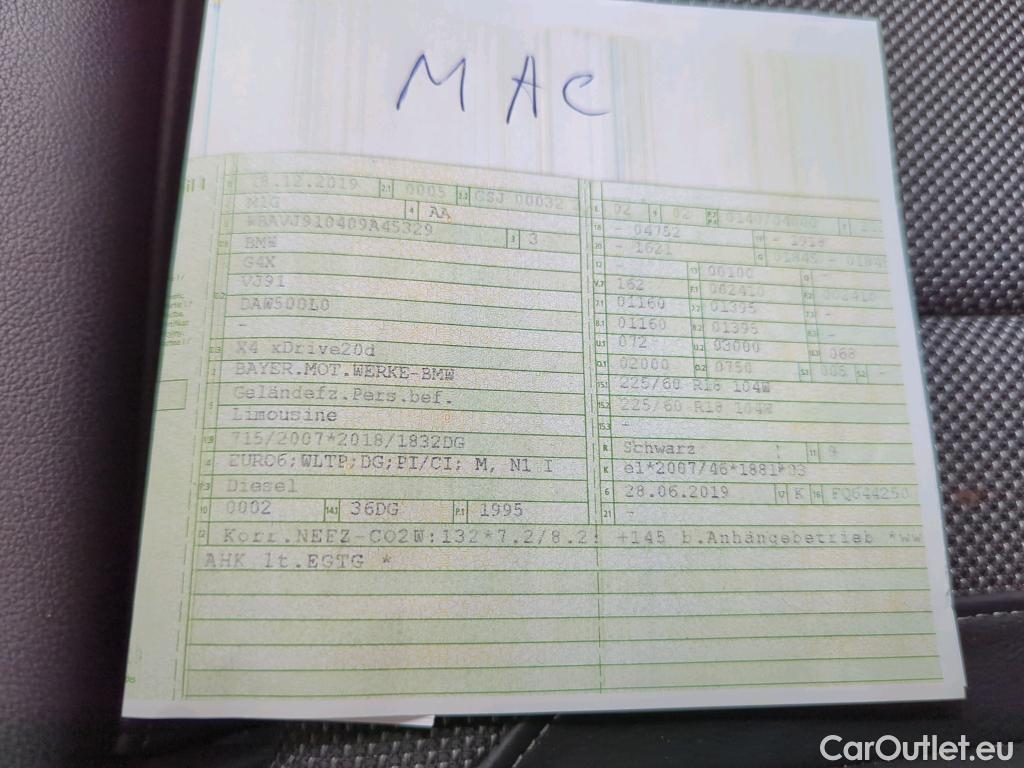 MAC
B 18.12.2019 2.1 0005 2.2 CSJ 00032
J M1G 4 AA
E WBAVJ910409A45329 3 3
D.1 BMW
G4X
D.2 VJ91
DAW500L0
-
D.3 X4 xDrive20d
2 BAYER.MOT.WERKE-BMW
5 Geländefz.Pers.bef.
Limousine
V.9 715/2007*2018/1832DG
14 EURO6;WLTP;DG;PI/CI; M, N1 I
P.3 Diesel
10 0002 14.1 36DG P.1 1995
L 02 9 02 P.2 P.4 0140/04000 T
18 - 04752 19 - 1918
20 - 1621 G 01845 - 0184
12 - 13 00100 Q -
V.7 162 F.1 002410 F.2 002410
7.1 01160 7.2 01395 7.3 -
8.1 01160 8.2 01395 8.3 -
U.1 072 U.2 03000 U.3 068
O.1 02000 O.2 0750 S.1 005 S.2 -
15.1 225/60 R18 104W
15.2 225/60 R18 104W
15.3 -
R Schwarz 11 9
K e1*2007/46*1881*03
6 28.06.2019 17 K 16 FQ644250
21 -
22 Korr.NEFZ-CO2W:132*7.2/8.2: +145 b.Anhängebetrieb *ww
AHK lt.EGTG *
CarOutlet.eu